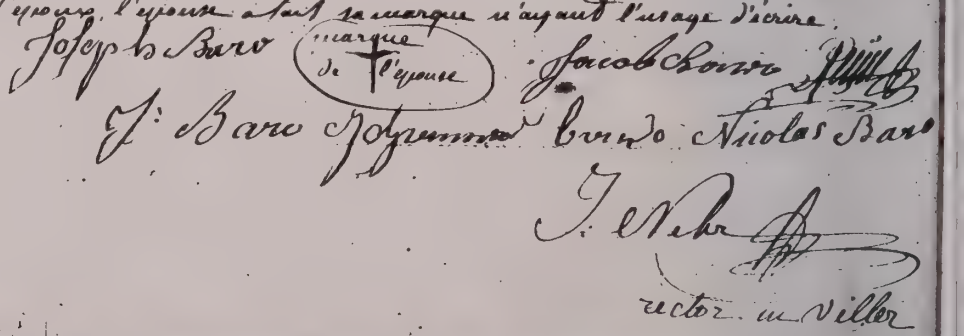 époux, l'épouse a fait sa marque n'ayant l'usage d'écrire.
Joseph Baro marque de l'épouse Jacob
J: Baro Nicolas Baro
J: Nehr
rector in Viller